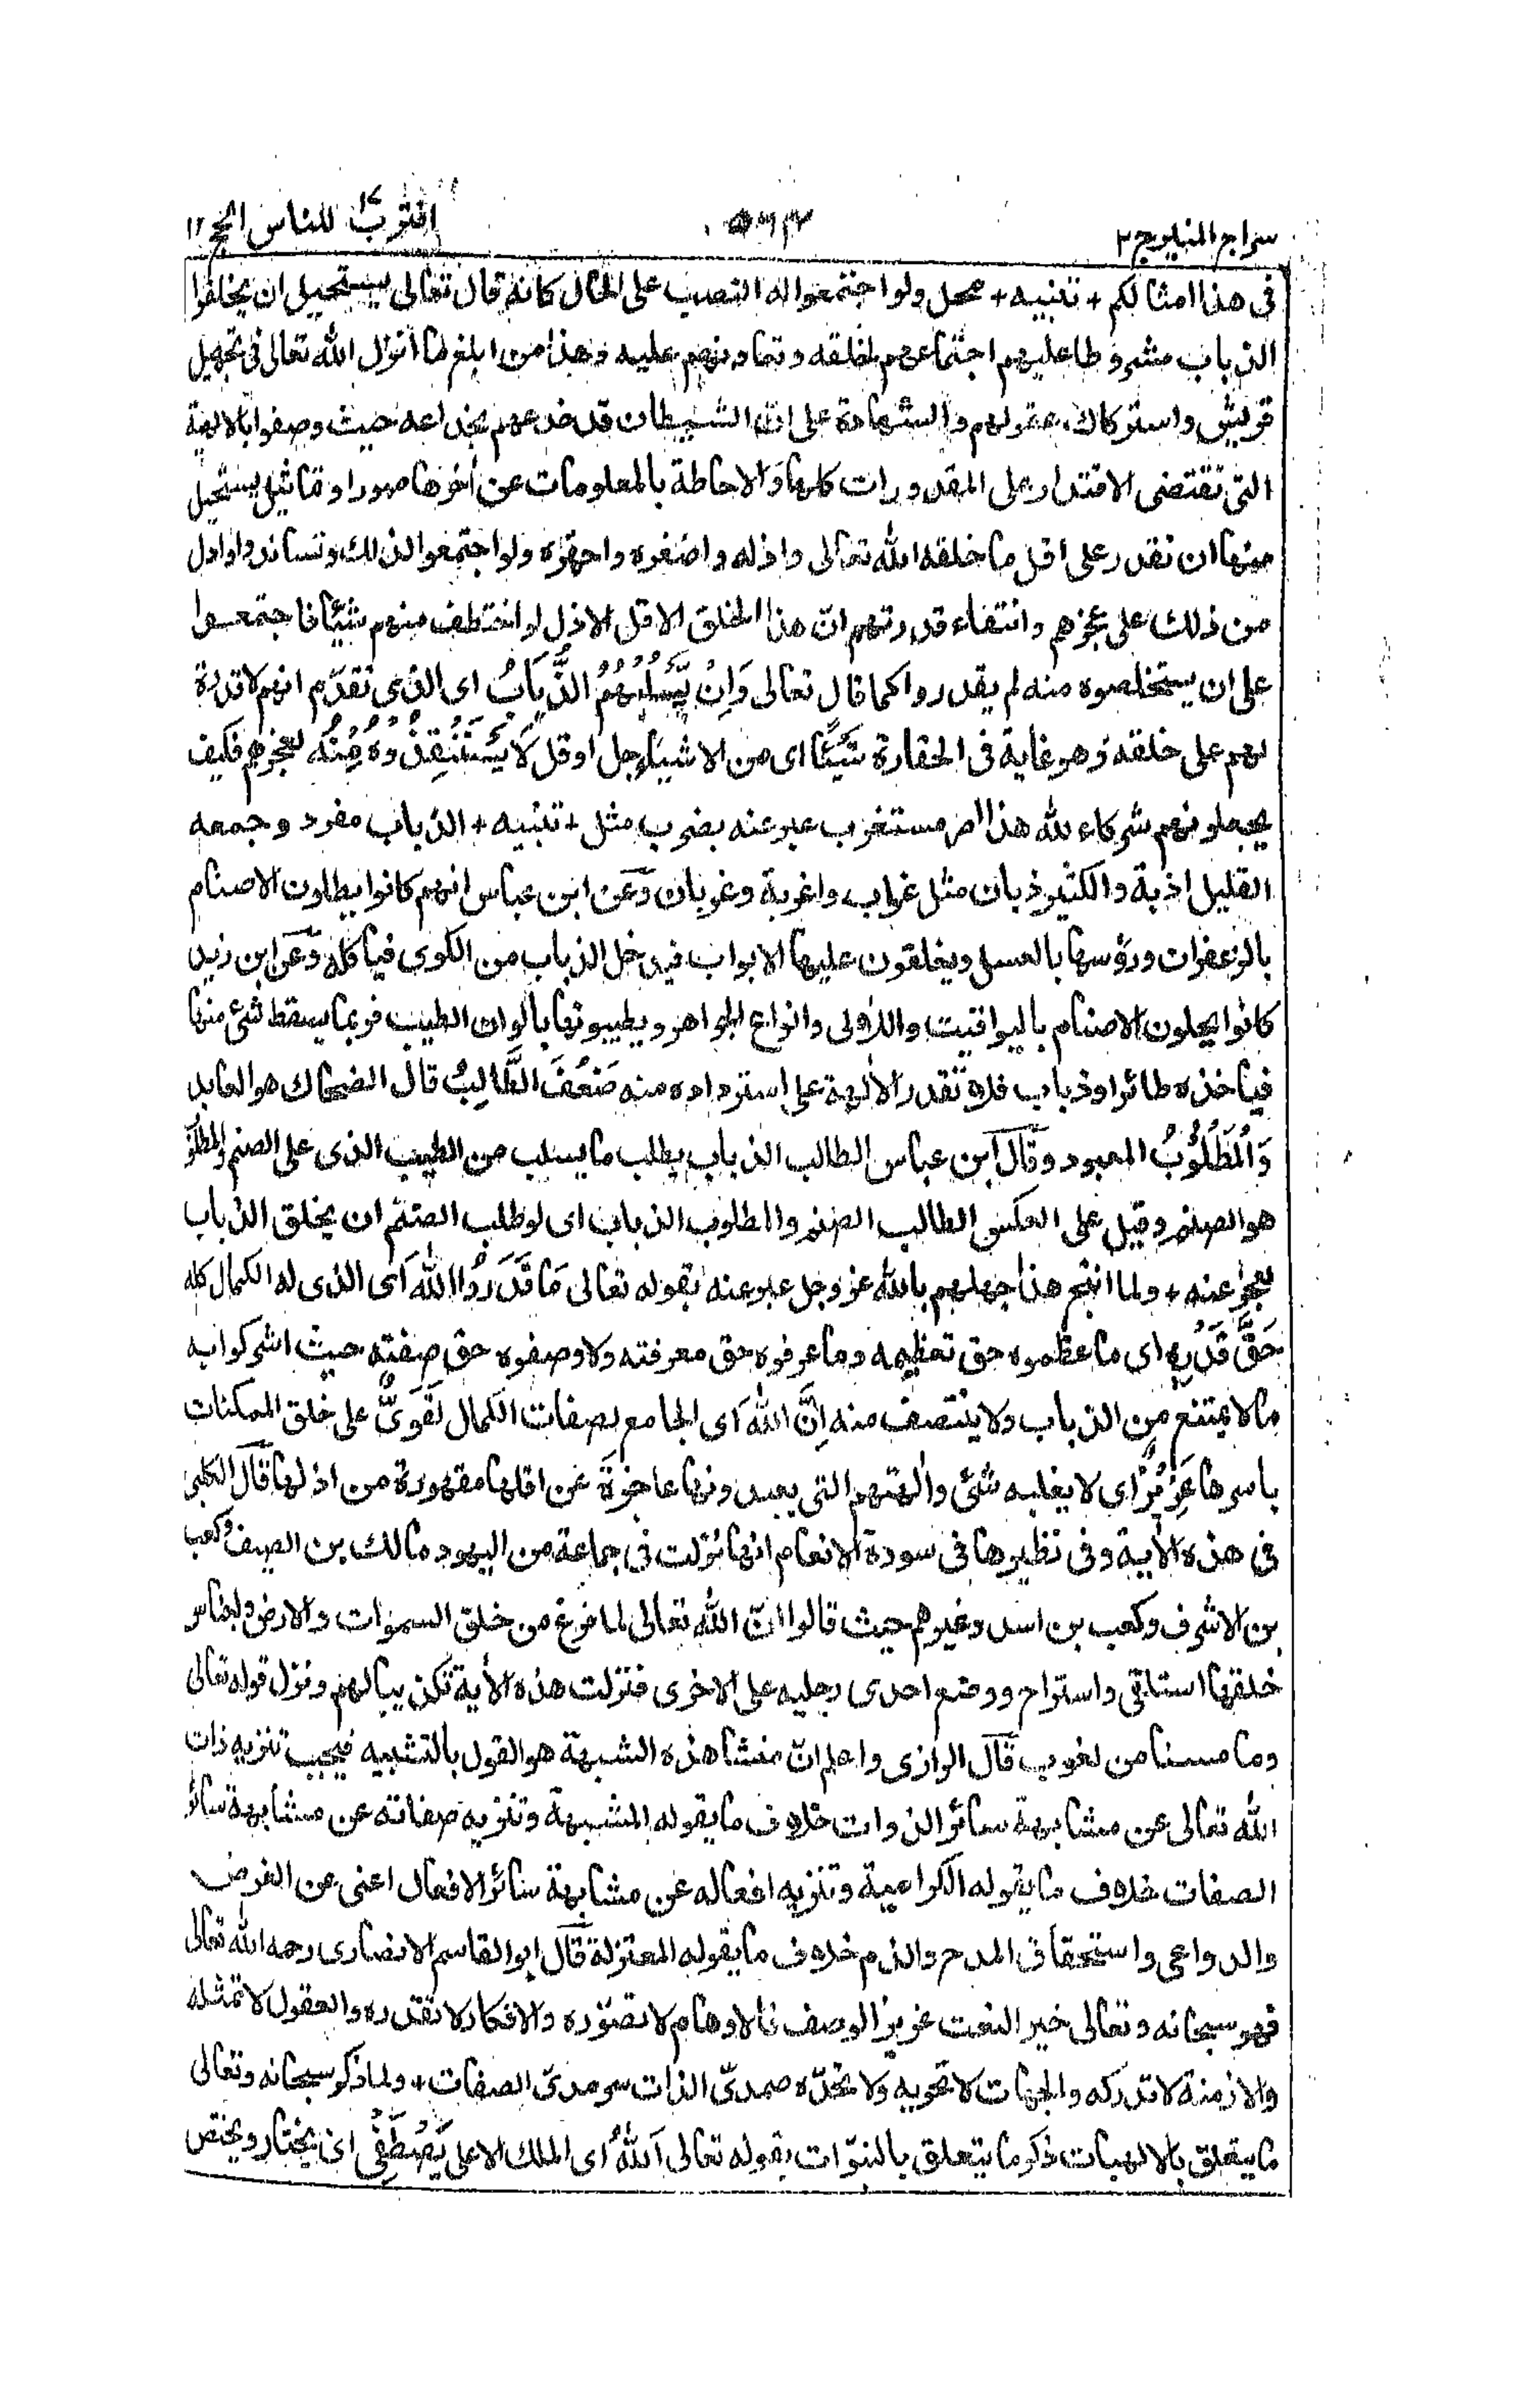 سراج المنير ج ٢
٥٦٣
اقترب للناس ١٧ الحج
فى هذا امثالكم + تنبيه + محل ولو اجتمعوا له النصب على الحال كانه قال تعالى يستحيل ان يخلقوا
الذباب مشروطا عليهم اجتماعهم لخلقه وتعاونهم عليه وهذا من ابلغ ما انزل الله تعالى فى تجهيل
قريش واستركاك عقولهم والشهادة على ان الشيطان قد خدعهم بخداعه حيث وصفوا بالالهية
التى تقتضى الاقتدار على المقدورات كلها والاحاطة بالمعلومات عن اخرها صورا وتماثيل يستحيل
منها ان تقدر على اقل ما خلقه الله تعالى واذله واصغره واحقره ولو اجتمعوا لذلك وتساندوا وادل
من ذلك على عجزهم وانتفاء قدرتهم ان هذا الخلق الاقل الاذل لو اختطف منهم شيئا فاجتمعوا
على ان يستخلصوه منه لم يقدروا كما قال تعالى وَاِنْ يَّسْلُبْهُمُ الذُّبَابُ اى الذى تقدّم انهم لا قدرة
لهم على خلقه وهو غاية فى الحقارة شَيْئًا اى من الاشياء جل او قل لَا يَسْتَنْقِذُوْهُ مِنْهُ لعجزهم فكيف
يجعلونهم شركاء لله هذا امر مستغرب عبر عنه بضرب مثل + تنبيه + الذباب مفرد وجمعه
القليل اذبة والكثير ذبان مثل غراب واغربة وغربان وعن ابن عباس انهم كانوا يطلون الاصنام
بالزعفران ورؤسها بالعسل ويغلقون عليها الابواب فيدخل الذباب من الكوى فياكله وعن ابن زيد
كانوا يحلون الاصنام باليواقيت واللاٰلى وانواع الجواهر ويطيبونها بالوان الطيب فربما يسقط شئ منها
فياخذه طائر او ذباب فلا تقدر الاٰلهة على استرداده منه ضَعُفَ الطَّالِبُ قال الضحاك هو العابد
وَالْمَطْلُوْبُ المعبود وقال ابن عباس الطالب الذباب يطلب ما يسلب من الطيب الذى على الصنم والمطلوب
هو الصنم وقيل على العكس الطالب الصنم والمطلوب الذباب اى لو طلب الصنم ان يخلق الذباب
لعجز عنه + ولما انتج هذا جهلهم بالله عز وجل عبر عنه بقوله تعالى مَا قَدَرُوا اللهَ اى الذى له الكمال كله
حَقَّ قَدْرِهٖ اى ما عظموه حق تعظيمه وما عرفوه حق معرفته ولا وصفوه حق صفته حيث اشركوا به
ما لا يمتنع من الذباب ولا ينتصف منه اِنَّ اللهَ اى الجامع لصفات الكمال لَقَوِىٌّ على خلق الممكنات
باسرها عَزِيْزٌ اى لا يغلبه شئ واٰلهتهم التى يعبدونها عاجزة عن اقلها مقهورة من اذلها قال الكلبى
فى هذه الاٰية وفى نظيرها فى سورة الانعام انها نزلت فى جماعة من اليهود مالك بن الصيف وكعب
بن الاشرف وكعب بن اسد وغيرهم حيث قالوا انّ الله تعالى لما فرغ من خلق السموات والارض واجناس
خلقها استلقى واستراح ووضع احدى رجليه على الاخرى فنزلت هذه الاٰية تكذيبا لهم ونزل قوله تعالى
وما مسنا من لغوب قال الرازى واعلم انّ منشا هذه الشبهة هو القول بالتشبيه فيجب تنزيه ذات
الله تعالى عن مشابهة سائر الذوات خلاف ما يقوله المشبهة وتنزيه صفاته عن مشابهة سائر
الصفات خلاف ما يقوله الكرامية وتنزيه افعاله عن مشابهة سائر الافعال اعنى عن الغرض
والدواعى واستحقاق المدح والذم خلاف ما يقوله المعتزلة قال ابو القاسم الانصارى رحمه الله تعالى
فهو سبحانه وتعالى خير النعت عزيز الوصف فالاوهام لا تصوّره والافكار لا تقدره والعقول لا تمثله
والازمنة لا تدركه والجهات لا تحويه ولا تحدّه صمدىّ الذات سرمدىّ الصفات + ولما ذكر سبحانه وتعالى
ما يتعلق بالالهيات ذكر ما يتعلق بالنبوّات بقوله تعالى اَللهُ اى الملك الاعلى يَصْطَفِىْ اى يختار ويختص